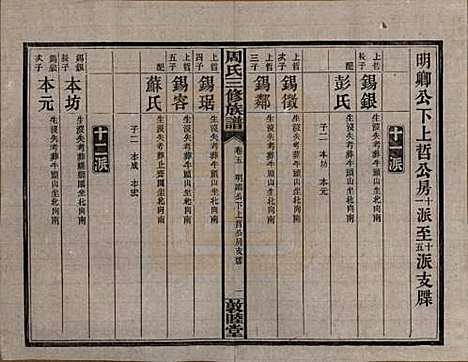 明卿公下上哲公房十一派至十五派支牒
十一派
上哲長子
錫銀
生沒失考葬牛頭山坐北向南
彭氏
生沒失考葬牛頭山坐北向南
子二 本坊 本元
上哲次子
錫徵
生沒失考葬牛頭山坐北向南
上哲三子
錫鄰
生沒失考葬牛頭山坐北向南
周氏三修族譜
卷五 明卿公下上哲公房支牒
一
敦睦堂
上哲四子
錫琚
生沒失考葬牛頭山坐北向南
上哲五子
錫客
生沒失考葬牛頭山坐北向南
蘇氏
生沒失考葬止齋園坐北向南
子二 本成 本宏
十二派
錫銀長子
本坊
生沒失考葬牛頭山坐北向南
錫銀次子
本元
生沒失考葬牛頭山坐北向南